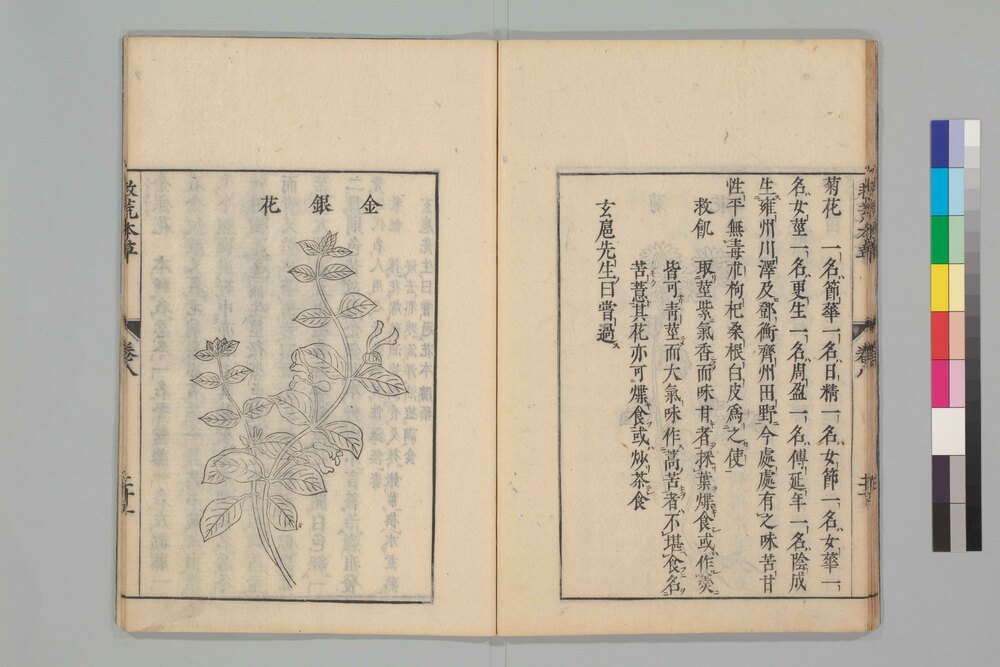 菊花 一名節華一名日精一名女節一名女華一
名女莖一名更生一名周盈一名傅延年一名陰成
生雍州川澤及鄧衡齊州田野今處處有之味苦甘
性平無毒朮枸杞桑根白皮爲之使
救飢 取莖紫氣香而味甘者採葉煠食或作羹
皆可靑莖而大氣味作蒿苦者不堪食名
苦薏其花亦可煠食或炒茶食
玄扈先生曰嘗過
金銀花
救荒本草 卷八